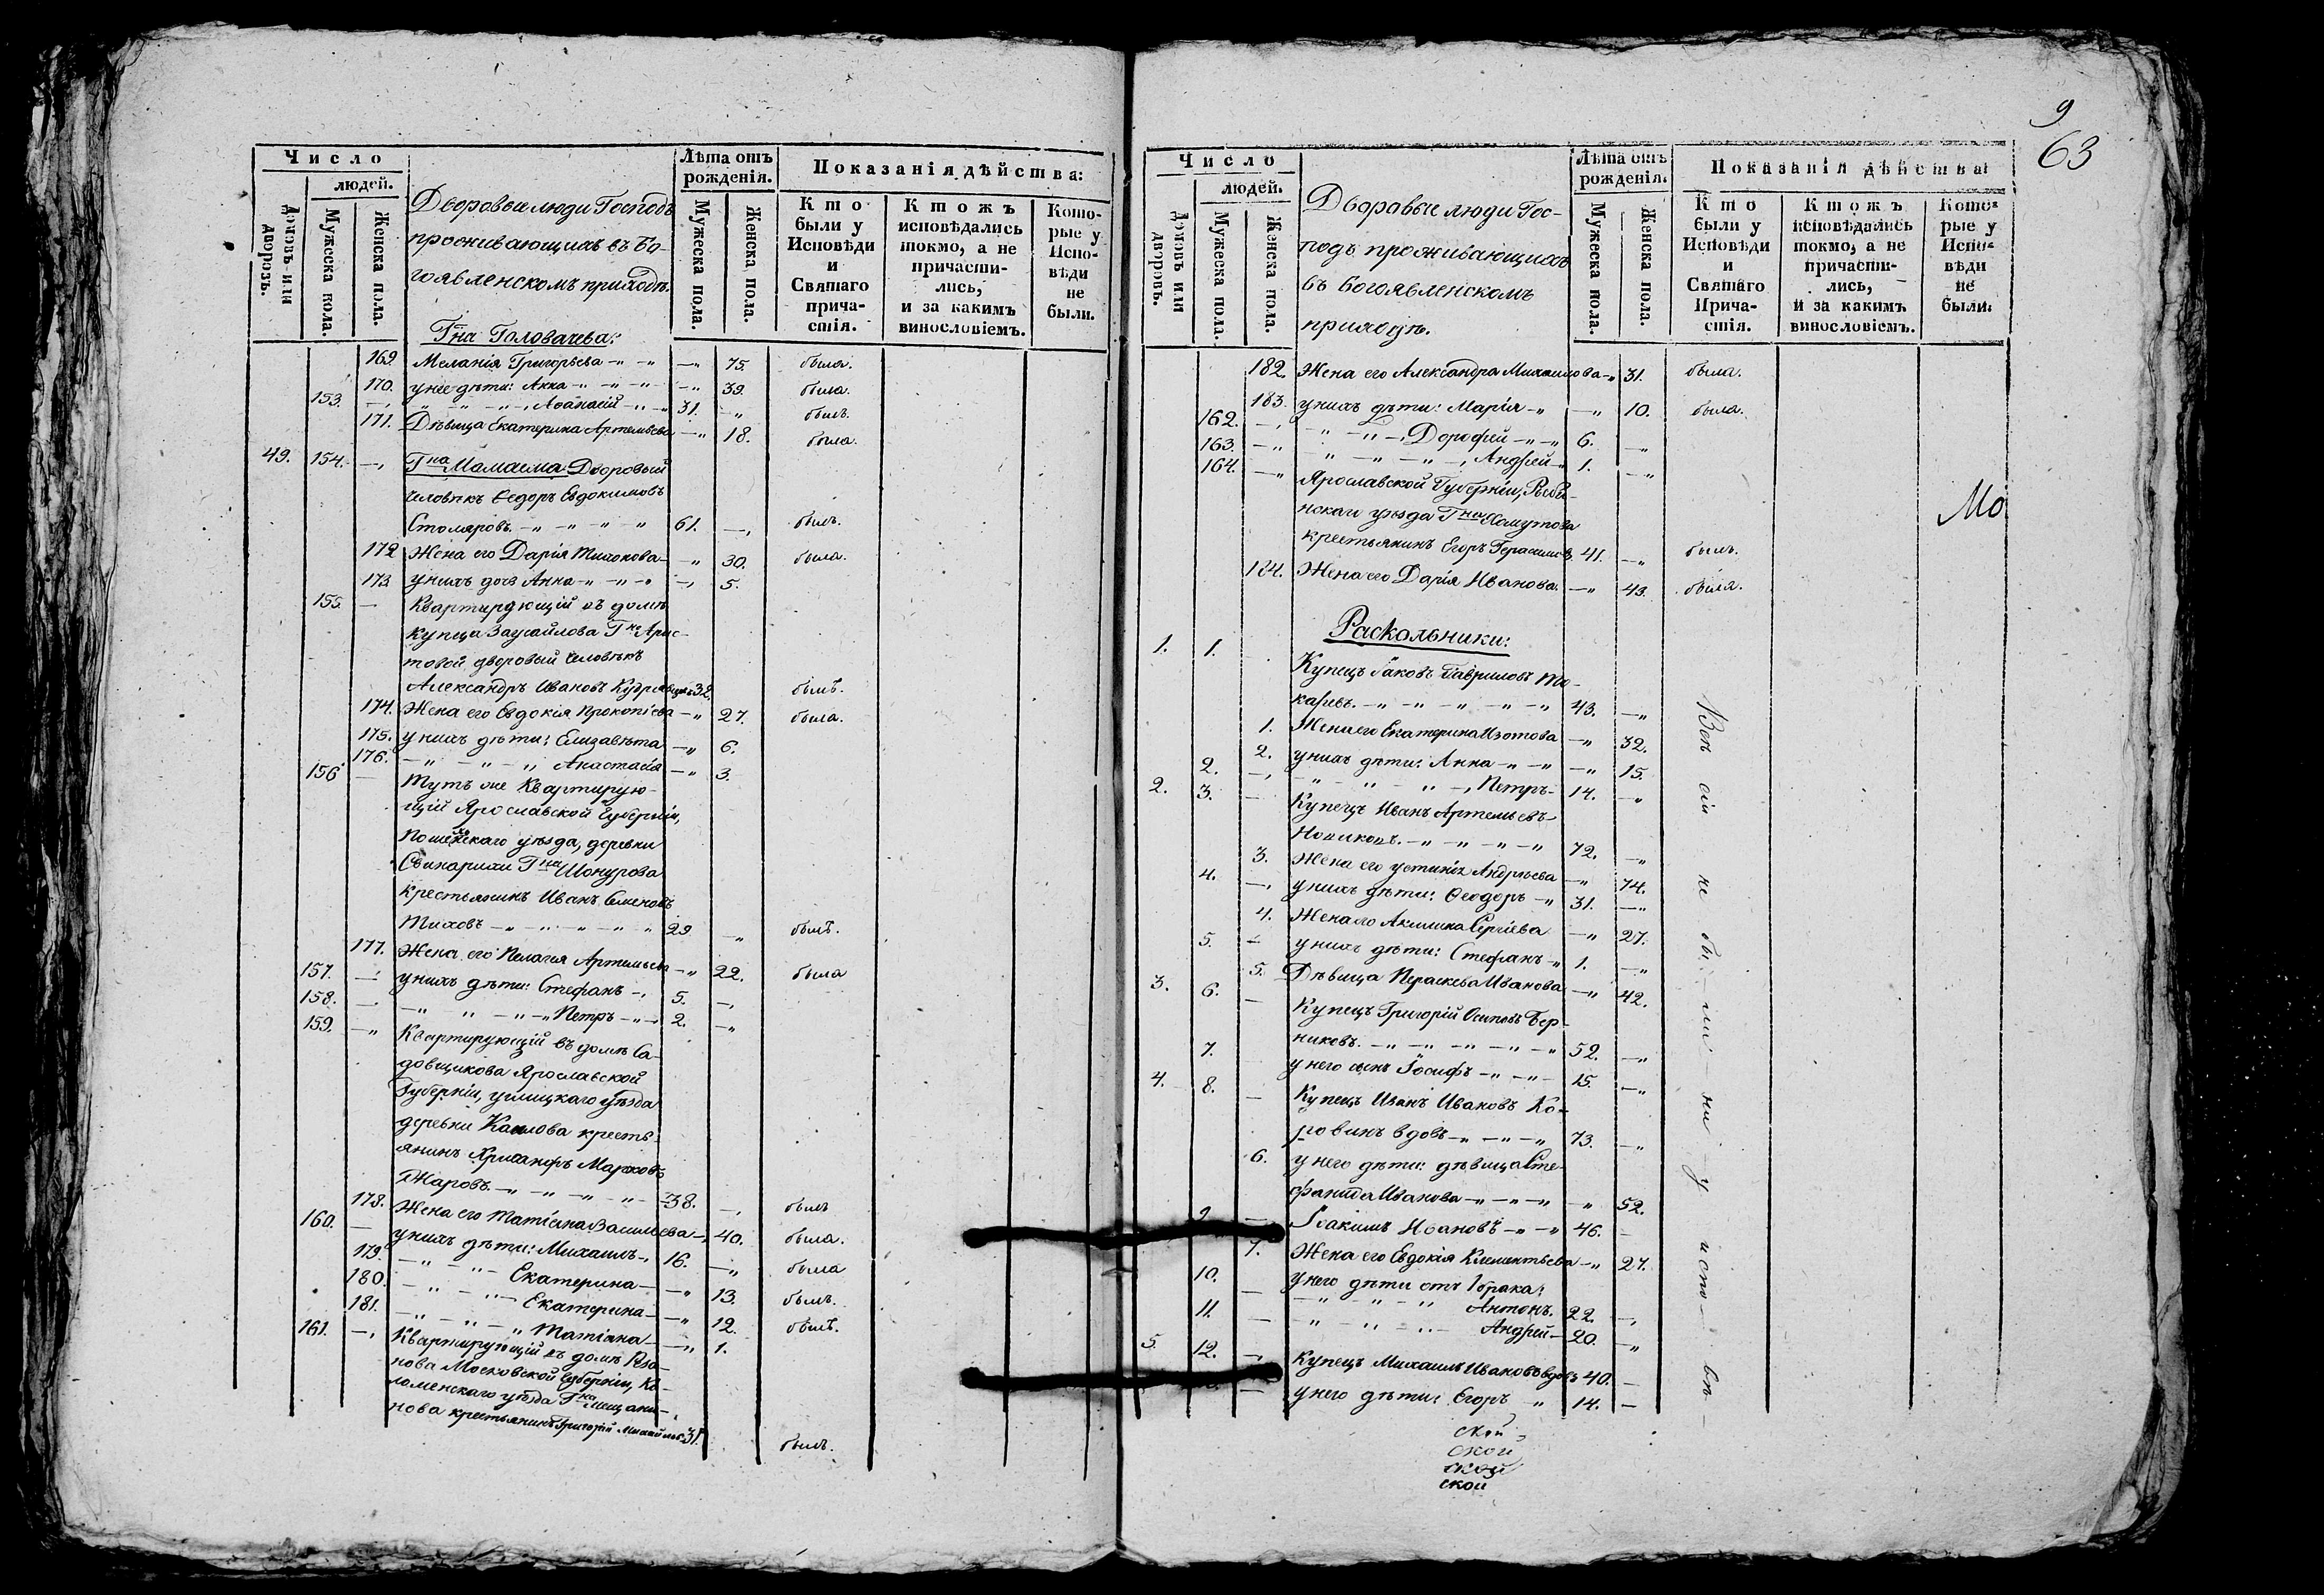 Число
людей.
Домовъ или дворовъ.
Мужеска пола.
Женска пола.
Дворовые люди Господъ
проживающихъ въ Бо-
гоявленскомъ приходѣ.
Лѣта отъ рожденія.
Мужеска пола.
Женска пола.
Показанія дѣйства:
Кто были у Исповѣди и Святаго прича-стія.
Ктожъ исповѣдались токмо, а не причасти-лись, и за какимъ винословіемъ.
Кото-рые у Испо-вѣди не были.
Гна Головачева:
169. Меланія Григорьева -"- -" 75. была.
170. у нее дѣти: Анна -"- -" 39. была.
153. -" -"- Аѳанасій -"- 31. -" былъ.
171. Дѣвица Екатерина Артемьева -" 18. была.
49. 154. -" Гна Дворовый
человѣкъ Ѳедоръ Евдокимовъ
Столяровъ. -"- -"- 61. -" былъ.
172. Жена его Дарія Тихонова -" 30. была.
173. у нихъ дочь Анна -"- -" 5.
155. - Квартирующій въ домѣ
купца Заусайлова Гжи Арис-
товой дворовый человѣкъ
Александръ Ивановъ 32. былъ.
174. Жена его Евдокія Прокопіева -" 27. была.
175. у нихъ дѣти: Елизавета -" 6.
176. -"- -"- Анастасія -" 3.
156. - Тутъ же Квартирую-
щій Ярославской Губерніи,
Пошехонскаго уѣзда, деревни
Свинарихи Гна
крестьянинъ Иванъ Семеновъ
Тиховъ -"- -"- 29. -" былъ.
177. Жена его Пелагея Артемьева -" 22. была
157. -" у нихъ дѣти: Стефанъ -" 5. -"
158. -" -"- -"- Петръ -"- 2. -"
159. -" Квартирующій въ домѣ Са-
довщикова Ярославской
Губерніи, углицкаго уѣзда
деревни крестъ-
янинъ Хрисанфъ Марковъ
Жаровъ. -"- -"- 38. -" былъ
178. Жена его Татіана Васильева -" 40. была.
160. - у нихъ дѣти: Михаилъ -" 16. -" была
179. -"- -"- Екатерина -" 13. былъ.
180. -"- -"- Екатерина -" 12. былъ.
181. -"- -"- Татіана -" 1.
161. -" Квартирующій въ домѣ Ряза-
нова Московской Губерніи, Ко-
ломенскаго уѣзда Гна Мещани-
нова крестьянинъ Григорій Михайловъ 31. былъ.
9
63
Число
людей.
Домовъ или дворовъ.
Мужеска пола.
Женска пола.
Дворовые люди Гос-
подъ проживающихъ
въ Богоявленскомъ
приходѣ.
Лѣта отъ рожденія.
Мужеска пола.
Женска пола.
Показанія дѣйства:
Кто были у Исповѣди и Святаго Прича-стія.
Ктожъ исповѣдались токмо, а не причасти-лись, и за какимъ винословіемъ.
Кото-рые у Испо-вѣди не были.
182. Жена его Александра Михаилова -" 31. была.
183. у нихъ дѣти: Марія -" -" 10. была.
162. -" -"- -" Дорофей -"- 6. -"
163. -" -"- -"- Андрей -" 1. -"
164. -" Ярославской Губерніи, Рыби-
нскаго уѣзда Гна Хомутова
крестьянинъ Егоръ Герасимовъ 41. -" былъ.
184. Жена его Дарія Иванова. -" 43. была.
Мо
Раскольники:
1. 1. Купецъ Іаковъ Гавриловъ То-
каревъ. -"- -"- 43. -"
1. Жена его Екатерина Изотова -" 32.
2. у нихъ дѣти: Анна -"- -" 15.
2. -" -"- -"- Петръ - 14. -"
2. 3. - Купецъ Иванъ Артемьевъ
Новиковъ. -"- -"- 72. -"
3. Жена его Устинія Андреева -" 74.
4. -" у нихъ дѣти: Ѳеодоръ -" 31. -"
4. Жена его Акилина Сергіева -" 27.
5. - у нихъ дѣти: Стефанъ -" 1. -"
5. Дѣвица Параскева Иванова -" 42.
3. 6. - Купецъ Григорій Осиповъ Бер-
никовъ. -"- -"- 52. -"
7. у него сынъ Іосифъ -"- 15. -"
4. 8. - Купецъ Иванъ Ивановъ Ко-
ровинъ вдовъ -"- -" 73. -"
6. у него дѣти: дѣвица Сте-
фанида Иванова -"- -" 52.
9. - Іоакимъ Ивановъ -"- 46. -
7. Жена его Евдокія Климентьева -" 27.
10. - у него дѣти отъ 1 брака:
-"- -"- Антонъ. 22. -"
11. - -"- -"- Андрей - 20. -"
5. 12. -" Купецъ Михаилъ Ивановъ вдовъ 40. -
- у него дѣти: Егоръ " 14. -
Всѣ сіи не бы-ли-ни-у испо-вѣ-
ской
ской
ской
ской